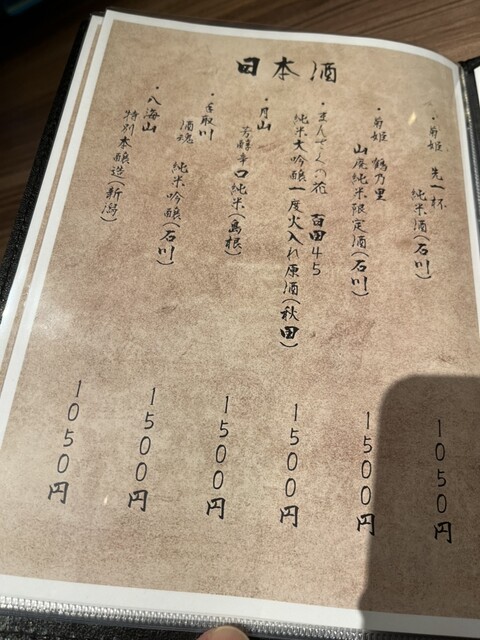 日本酒
・菊姫 先一杯
純米酒(石川)
1050円
・菊姫 鶴乃里
山廃純米限定酒(石川)
1500円
・まんさくの花 百田45
純米大吟醸一度火入れ原酒(秋田)
1500円
・月山
芳醇辛口純米(島根)
1500円
・手取川
酒魂 純米吟醸(石川)
1500円
・八海山
特別本醸造(新潟)
1050円